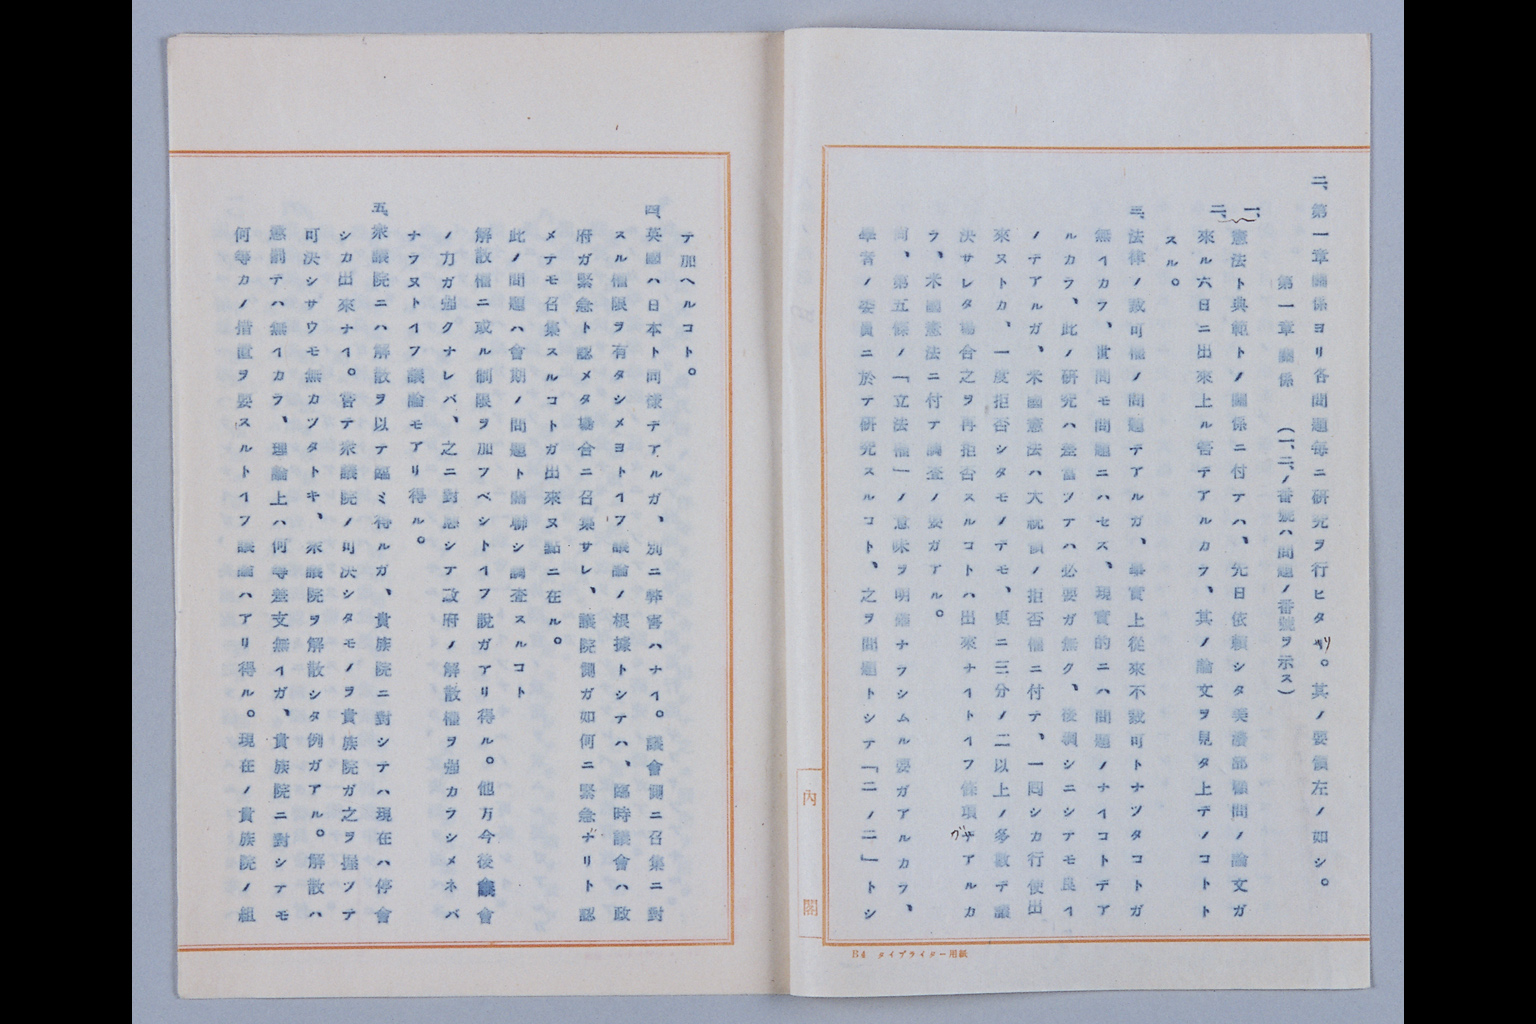 二、第一章關係ヨリ各問題每ニ硏究ヲ行ヒタリ。其ノ要領左ノ如シ。
第一章關係 (一、二、ノ番號ハ問題ノ番號ヲ示ス)
一、
二、憲法ト典範トノ關係ニ付テハ、先日依賴シタ美濃部顧問ノ論文ガ
來ル六日ニ出來上ル筈デアルカラ、其ノ論文ヲ見タ上デノコトト
スル。
三、法律ノ裁可權ノ問題デアルガ、事實上從來不裁可トナツタコトガ
無イカラ、世間モ問題ニハセズ、現實的ニハ問題ノナイコトデア
ルカラ、此ノ硏究ハ差當ツテハ必要ガ無ク、後𢌞シニシテモ良イ
ノデアルガ、米國憲法ハ大統領ノ拒否權ニ付テ、一囘シカ行使出
來ヌトカ、一度拒否シタモノデモ、更ニ三分ノ二以上ノ多數デ議
決サレタ場合之ヲ再拒否スルコトハ出來ナイトイフ條項ガアルカ
ラ、米國憲法ニ付テ調査ノ要ガアル。
尙、第五條ノ「立法權」ノ意味ヲ明確ナラシムル要ガアルカラ、
學者ノ委員ニ於テ硏究スルコト、之ヲ問題トシテ「二ノ二」トシ
內閣
B4 タイプライター用紙
テ加ヘルコト。
四、英國ハ日本ト同樣デアルガ、別ニ弊害ハナイ。議會側ニ召集ニ對
スル權限ヲ有タシメヨトイフ議論ノ根據トシテハ、臨時議會ハ政
府ガ緊急ト認メタ場合ニ召集サレ、議院側ガ如何ニ緊急ナリト認
メテモ召集スルコトガ出來ヌ點ニ在ル。
此ノ問題ハ會期ノ問題ト關聯シ調査スルコト
解散權ニ或ル制限ヲ加フベシトイフ說ガアリ得ル。他方今後議會
ノ力ガ强クナレバ、之ニ對應シテ政府ノ解散權ヲ强カラシメネバ
ナラヌトイフ議論モアリ得ル。
五、衆議院ニハ解散ヲ以テ臨ミ得ルガ、貴族院ニ對シテハ現在ハ停會
シカ出來ナイ。嘗テ衆議院ノ可決シタモノヲ貴族院ガ之ヲ握ツテ
可決シサウモ無カツタトキ、衆議院ヲ解散シタ例ガアル。解散ハ
懲罰デハ無イカラ、理論上ハ何等差支無イガ、貴族院ニ對シテモ
何等カノ措置ヲ要スルトイフ議論ハアリ得ル。現在ノ貴族院ノ組